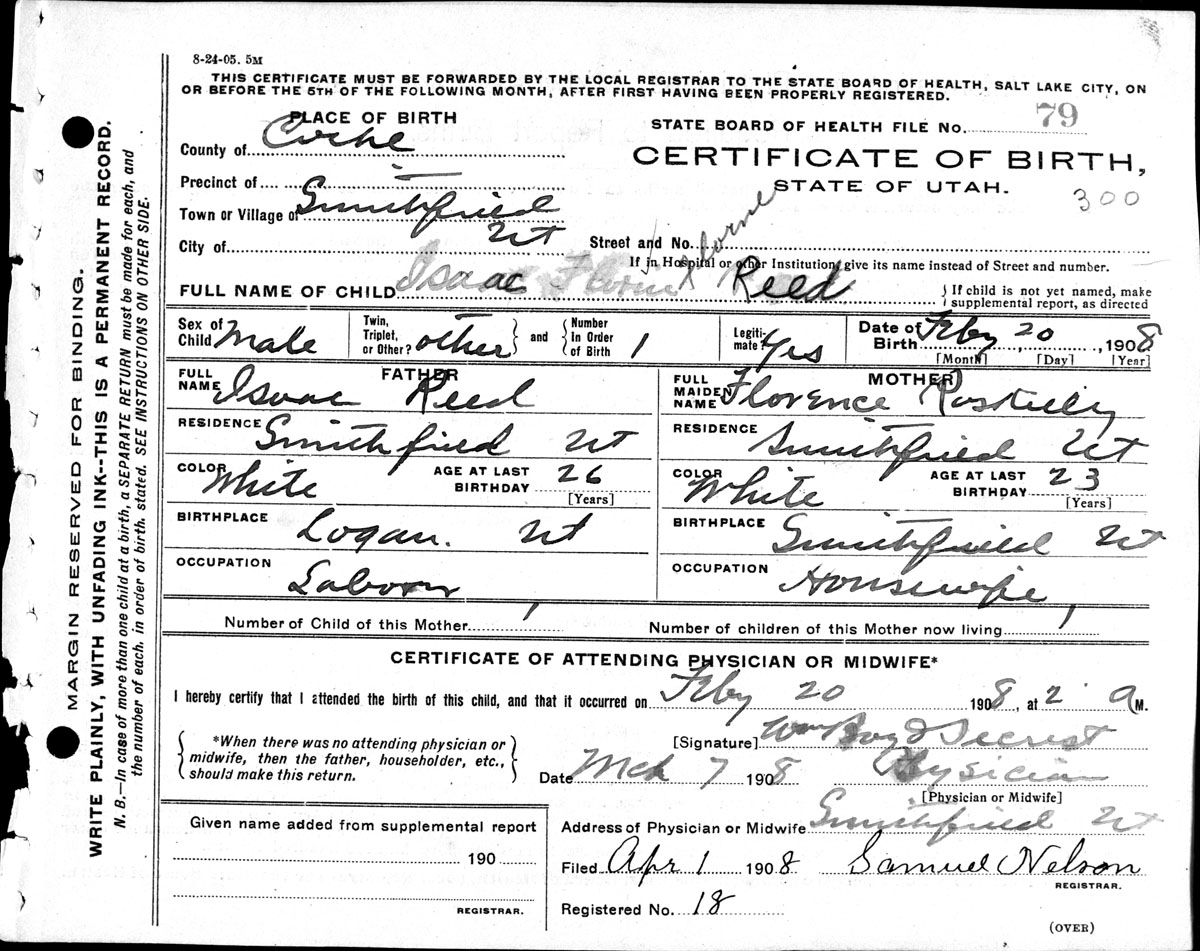 8-24-05. 5M
THIS CERTIFICATE MUST BE FORWARDED BY THE LOCAL REGISTRAR TO THE STATE BOARD OF HEALTH, SALT LAKE CITY, ON
OR BEFORE THE 5TH OF THE FOLLOWING MONTH, AFTER FIRST HAVING BEEN PROPERLY REGISTERED.
PLACE OF BIRTH
County of Cache
Precinct of
Town or Village of Smithfield
Ut
City of
STATE BOARD OF HEALTH FILE No. 79
CERTIFICATE OF BIRTH,
STATE OF UTAH.
300
Street and No.
If in Hospital or other Institution give its name instead of Street and number.
FULL NAME OF CHILD Isaac Reed
If child is not yet named, make
supplemental report, as directed
Sex of Child Male
Twin, Triplet, or Other? other and Number in Order of Birth 1
Legiti- mate? Yes
Date of Birth Feby 20, 1908
[Month] [Day] [Year]
FATHER
FULL NAME Isaac Reed
RESIDENCE Smithfied Ut
COLOR White AGE AT LAST BIRTHDAY 26
[Years]
BIRTHPLACE Logan. Ut
OCCUPATION Labor
MOTHER
FULL MAIDEN NAME Florence Roskelly
RESIDENCE Smithfied Ut
COLOR White AGE AT LAST BIRTHDAY 23
[Years]
BIRTHPLACE Smithfield Ut
OCCUPATION Housewife
Number of Child of this Mother 1
Number of children of this Mother now living 1
CERTIFICATE OF ATTENDING PHYSICIAN OR MIDWIFE*
I hereby certify that I attended the birth of this child, and that it occurred on Feby 20 1908, at 2 a M.
*When there was no attending physician or
midwife, then the father, householder, etc.,
should make this return.
[Signature] Wm Boyd Secrest
Date Mch 7 1908 Physician
[Physician or Midwife]
Given name added from supplemental report
190
REGISTRAR.
Address of Physician or Midwife Smithfied Ut
Filed Apr 1 1908 Samuel Nelson
REGISTRAR.
Registered No. 18
(OVER)
MARGIN RESERVED FOR BINDING.
WRITE PLAINLY, WITH UNFADING INK--THIS IS A PERMANENT RECORD.
N. B.—In case of more than one child at a birth, a SEPARATE RETURN must be made for each, and
the number of each, in order of birth, stated. SEE INSTRUCTIONS ON OTHER SIDE.